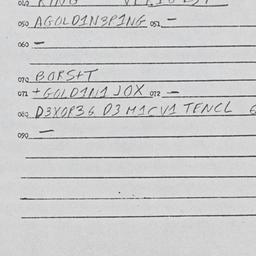 050 AGOLD1N3P1NG 051 —
060 —
070 BORS+T
071 +GOLD1N1 JOX 072 —
080 D3XOP36 D3 M1CV1 TENCL
090 —